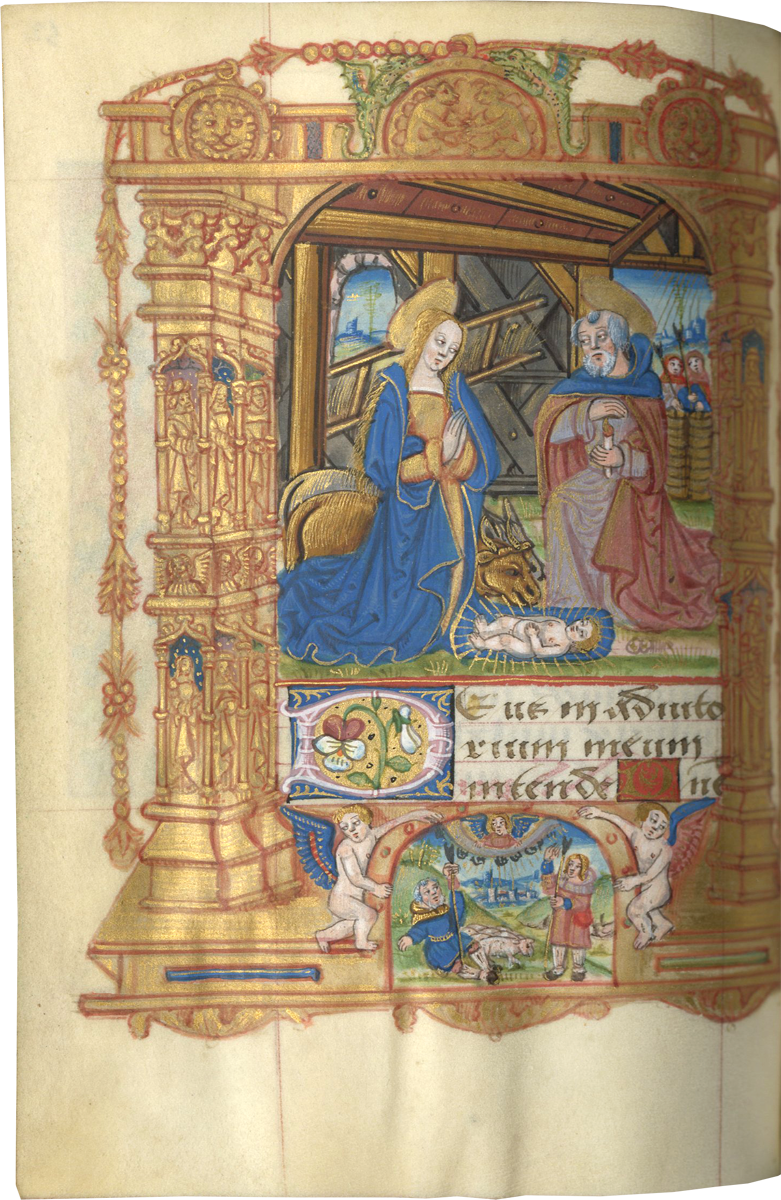 Deus in adiuto
rium meum
intende One